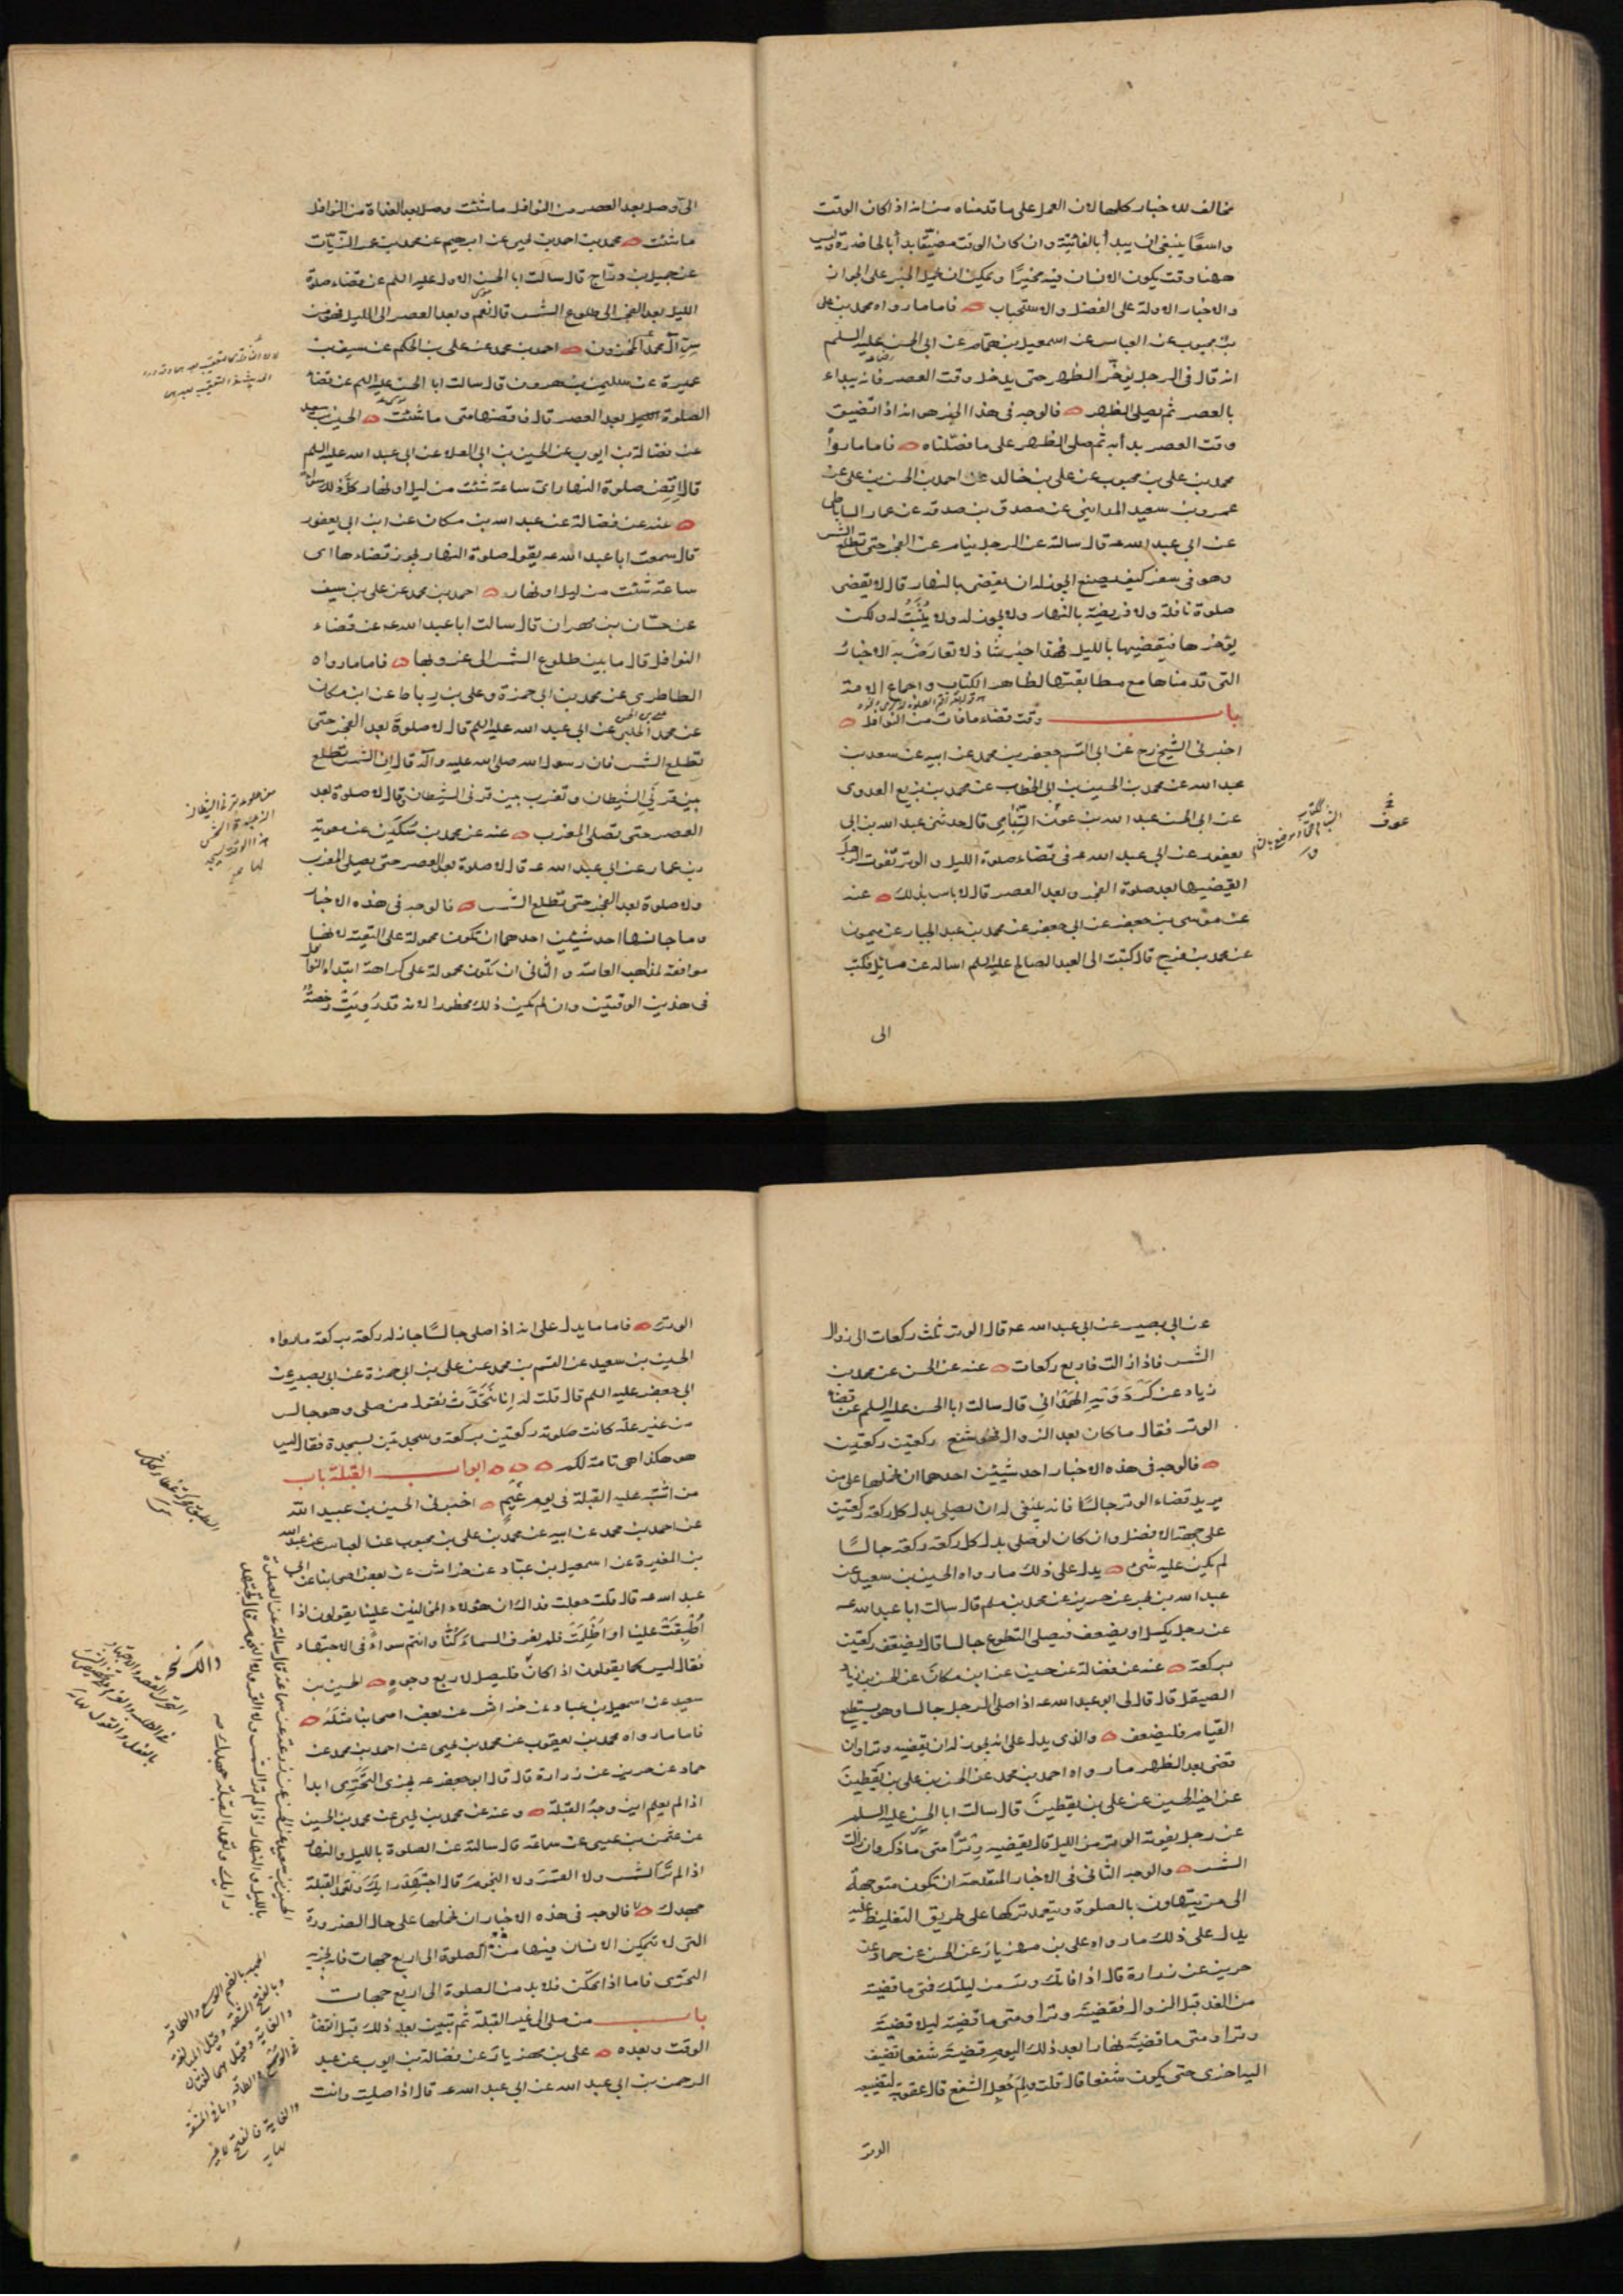 مخالف للاخبار كلها لان العمل على ما قدمناه من انه اذا كان الوقت
واسعًا ينبغى ان يبدأ بالفائتة وان كان الوقت مضيّقا بدأ بالحاضرة وليس
ههنا وقت يكون الانسان فيه مخيرًا ويمكن ان نحمل الخبر على الجواز
والاخبار الاولة على الفضل والاستحباب فاما ما رواه محمد بن على
بن محبوب عن العباس عن اسمعيل بن همام عن ابى الحسن عليه السلم
انه قال فى الرجل يؤخّر الظهر حتى يدخل وقت العصر فانه يبداء
بالعصر ثم يصلى الظهر فالوجه فى هذا الخبر هو انه اذا تضيق
وقت العصر بدأ به ثم صلى الظهر على ما فصّلناه فاما ما رواه
محمد بن على بن محبوب عن على بن خالد عن احمد بن الحسن بن على عن
عمرو بن سعيد المدائنى عن مصدق بن صدقه عن عمار الساباطى
عن ابى عبد الله عه قال سالته عن الرجل ينام عن الفجر حتى تطلع الشمس
وهو فى سفر كيف يصنع ايجوز له ان يقضى بالنهار قال لا يقضى
صلوة نافلة ولا فريضة بالنهار ولا يجوز له ولا يثبت له ولكن
يؤخرها فيقضيها بالليل فهذا خبر شاذ لا تعارض به الاخبار
التى قدمناها مع مطابقتها لظاهر الكتاب واجماع الامة
باب وقت قضاء ما فات من النوافل
اخبرنى الشيخ رح عن ابى القسم جعفر بن محمد عن ابيه عن سعد بن
عبد الله عن محمد بن الحسين بن ابى الخطاب عن محمد بن بزيع العدوى
عن ابى الحسن عبد الله بن عون الشامى قال حدثنى عبد الله بن ابى
يعفور عن ابى عبد الله عه فى قضاء صلوة الليل والوتر تفوت الرجل
ايقضيها بعد صلوة الفجر وبعد العصر قال لا باس بذلك عنه
عن موسى بن جعفر عن ابى جعفر عن محمد بن عبد الجبار عن ميمون
عن محمد بن فرج قال كتبت الى العبد الصالح عليه السلم اساله عن مسائل فكتب
الى
عوف
الىّ وصل بعد العصر من النوافل ما شئت وصل بعد الغداة من النوافل
ما شئت محمد بن احمد بن يحيى عن ابرهيم عن محمد بن عمر الزيات
عن جميل بن درّاج قال سالت ابا الحسن الاول عليه السلم عن قضاء صلوة
الليل بعد الفجر الى طلوع الشمس قال نعم وبعد العصر الى الليل فهو من
سرّ آل محمد المخزون احمد بن محمد عن على بن الحكم عن سيف بن
عميرة عن سليمن بن هرون قال سالت ابا الحسن عليه السلم عن قضاء
الصلوة الليل بعد العصر قال فاقضها متى ما شئت الحسين بن سعيد
عن فضالة بن ايوب عن الحسين بن ابى العلاء عن ابى عبد الله عليه السلم
قال اقض صلوة النهار اى ساعة شئت من ليل او نهار كل ذلك سواء
عنه عن فضالة عن عبد الله بن مسكان عن ابن ابى يعفور
قال سمعت ابا عبد الله عه يقول صلوة النهار يجوز قضاءها اى
ساعة شئت من ليل او نهار احمد بن محمد عن على بن سيف
عن حسّان بن مهران قال سالت ابا عبد الله عه عن قضاء
النوافل قال ما بين طلوع الشمس الى غروبها فاما ما رواه
الطاطرى عن محمد بن ابى حمزة وعلى بن رباط عن ابن مسكان
عن محمد الحلبى عن ابى عبد الله عليه السلم قال لا صلوة بعد الفجر حتى
تطلع الشمس فان رسول الله صلى الله عليه وآله قال ان الشمس تطلع
بين قرنى الشيطان وتغرب بين قرنى الشيطان وقال لا صلوة بعد
العصر حتى تصلى المغرب عنه عن محمد بن سكين عن معوية
بن عمار عن ابى عبد الله عه قال لا صلوة بعد العصر حتى يصلى المغرب
ولا صلوة بعد الفجر حتى تطلع الشمس فالوجه فى هذه الاخبار
وما جانسها احد شيئين احدهما ان تكون محمولة على التقية لانها
موافقة لمذاهب العامة والثانى ان تكون محمولة على كراهة ابتداء النوافل
فى هذين الوقتين وان لم يكن ذلك محظورا لانه قد رويت رخصة
عن ابى بصير عن ابى عبد الله عه قال الوتر ثلث ركعات الى زوال
الشمس فاذا زالت فاربع ركعات عنه عن الحسن عن محمد بن
زياد عن كردويه الهمدانى قال سالت ابا الحسن عليه السلم عن قضاء
الوتر فقال ما كان بعد الزوال فهو شفع ركعتين ركعتين
فالوجه فى هذه الاخبار احد شيئين احدهما ان نحملها على من
يريد قضاء الوتر جالسًا فانه ينبغى له ان يصلى بدل كل ركعة ركعتين
على جهة الافضل وان كان لو صلى بدل كل ركعة ركعة جالسًا
لم يكن عليه شئ يدل على ذلك ما رواه الحسين بن سعيد عن
عبد الله بن بحر عن حريز عن محمد بن مسلم قال سالت ابا عبد الله عه
عن رجل يكسل او يضعف فيصلى التطوع جالسا قال يضعف ركعتين
بركعة عنه عن فضالة عن حسين عن ابن مسكان عن الحسن بن زياد
الصيقل قال قال لى ابو عبد الله عه اذا صلى الرجل جالسا وهو يستطيع
القيام فليضعف والذى يدل على انه يجوز له ان يقضيه وترا وان
قضى بعد الظهر ما رواه احمد بن محمد عن الحسن بن على بن يقطين
عن اخيه الحسين عن على بن يقطين قال سالت ابا الحسن عليه السلم
عن رجل يفوته الوتر من الليل قال يقضيه وترًا متى ما ذكر وان زالت
الشمس والوجه الثانى فى الاخبار المتقدمة ان تكون متوجهة
الى من يتهاون بالصلوة ويتعمد تركها على طريق التغليظ عليه
يدل على ذلك ما رواه على بن مهزيار عن الحسن عن حماد عن
حريز عن زرارة قال اذا فاتك وتر من ليلتك فمتى ما قضيته
من الغد قبل الزوال فقضيته وترا ومتى ما قضيته ليلا قضيته
وترا ومتى ما قضيته نهارا بعد ذلك اليوم قضيته شفعا تضيف
اليه اخرى حتى يكون شفعا قال قلت ولم جُعل الشفع قال عقوبة لتضييعه
الوتر
الوتر فاما ما يدل على انه اذا صلى جالسًا جاز له ركعة بركعة ما رواه
الحسين بن سعيد عن القسم بن محمد عن على بن ابى حمزة عن ابى بصير عن
ابى جعفر عليه السلم قال قلت له انا نتحدث نقول من صلى وهو جالس
من غير علّة كانت صلوته ركعتين بركعة وسجدتين بسجدة فقال ليس
هو هكذا هى تامة لكم ابواب القبلة باب
من اشتبه عليه القبلة فى يوم غيم اخبرنى الحسين بن عبيد الله
عن احمد بن محمد عن ابيه عن محمد بن على بن محبوب عن العباس عن عبد الله
بن المغيرة عن اسمعيل بن عبّاد عن خراش عن بعض اصحابنا عن ابى
عبد الله عه قال قلت جعلت فداك ان هؤلاء المخالفين علينا يقولون اذا
اُطبقت علينا او اظلمت فلم نعرف السماء كُنّا وانتم سواءً فى الاجتهاد
فقال ليس كما يقولون اذا كان فليصل لاربع وجوهٍ الحسين بن
سعيد عن اسمعيل بن عباد عن خداش عن بعض اصحابنا مثله
فاما ما رواه محمد بن يعقوب عن محمد بن يحيى عن احمد بن محمد عن
حماد عن حريز عن زرارة قال قال ابو جعفر عه يجزى التحرّى ابدا
اذا لم يعلم اين وجهُ القبلة وعنه عن محمد بن يحيى عن محمد بن الحسين
عن عثمن بن عيسى عن سماعة قال سالته عن الصلوة بالليل والنهار
اذا لم تر الشمس ولا القمر ولا النجوم قال اجتهد رايك وتعمد القبلة
جهدك فالوجه فى هذه الاخبار ان نحملها على حال الضرورة
التى لا يتمكن الانسان فيها من الصلوة الى اربع جهات فانه يجزيه
التحرّى فاما اذا تمكّن فلا بد من الصلوة الى اربع جهات
باب من صلى الى غير القبلة ثم تبين بعد ذلك قبل انقضاء
الوقت وبعده على بن مهزيار عن فضالة بن ايوب عن عبد
الرحمن بن ابى عبد الله عن ابى عبد الله عه قال اذا صليت وانت
الحسين بن سعيد عن الحسن عن زرعة عن سماعة قال سالته عن الصلوة
بالليل والنهار اذا لم تر الشمس ولا القمر ولا النجوم قال تجتهد
رايك وتعمد القبلة جهدك